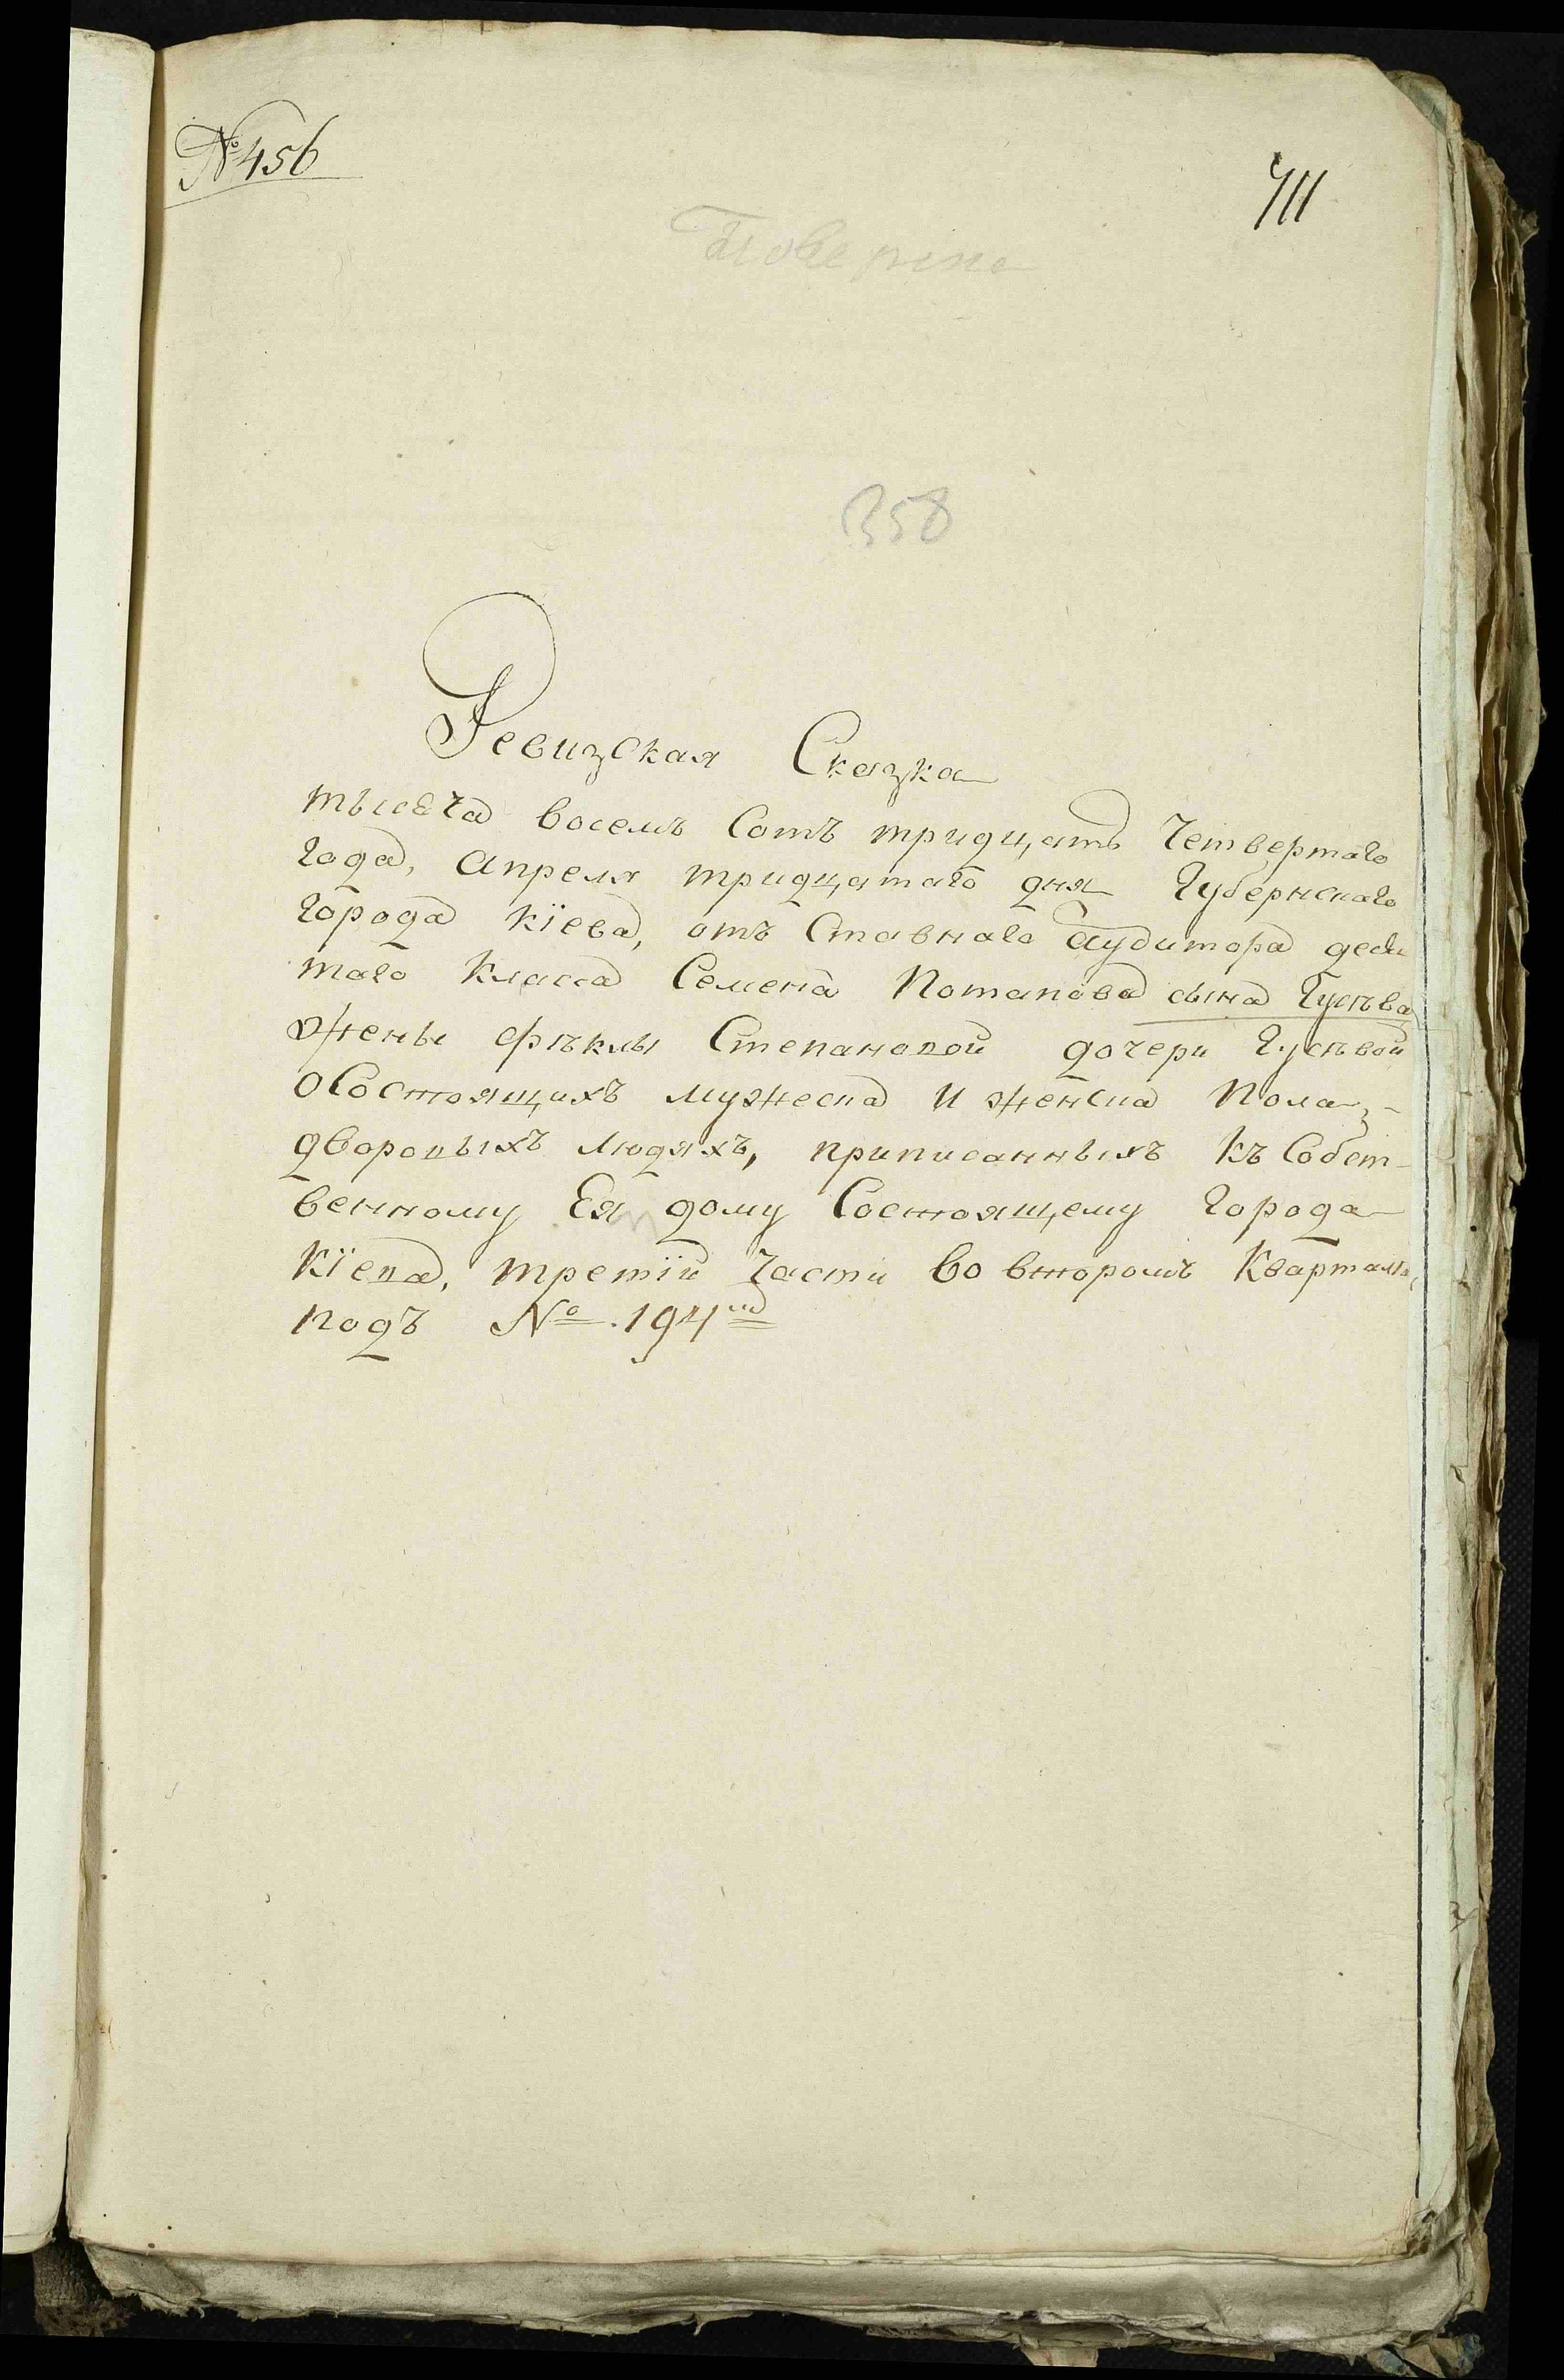 № 456
711
Поверена
358
Ревизская Сказка
тысеча восемъ Сотъ тридцать Четвертаго
года, Апреля тридцатаго дня Губернскаго
города Кіева, отъ Ставнаго Аудитора деся
таго Класса Семена Потапова сына Гусѣва
жены Фѣклы Степановой дочери Гусѣвой
о Состоящихъ мужеска и женска Пола
дворовыхъ людяхъ, приписанныхъ къ Собст-
венному Ея дому Состоящему Города
Кіева, третій Части во второмъ Квартале,
подъ № 194